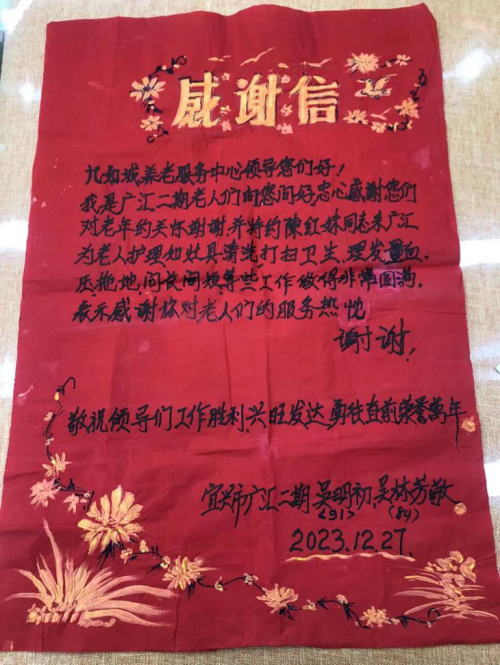 感谢信
九如城养老服务中心领导您们好！
我是广汇二期老人们向您问好忠心感谢您们
对老年的关怀谢谢并特约陈红妹同志来广汇
为老人护理如灶具清洗打扫卫生、理发量血
压拖地、问长问短等些工作做得非常圆满。
表示感谢你对老人们的服务热忱
谢谢！
敬祝领导们工作胜利、兴旺发达勇往直前荣誉万年
宜兴市广汇二期 吴明初、吴林芳敬
(91) (84)
2023.12.27.